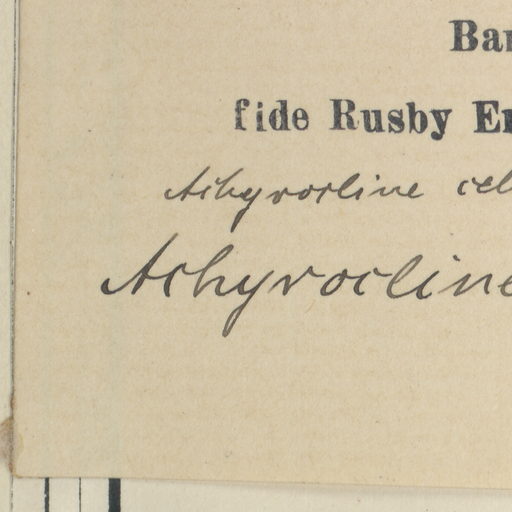 Bar
fide Rusby En
Achyrocline cel
Achyrocline